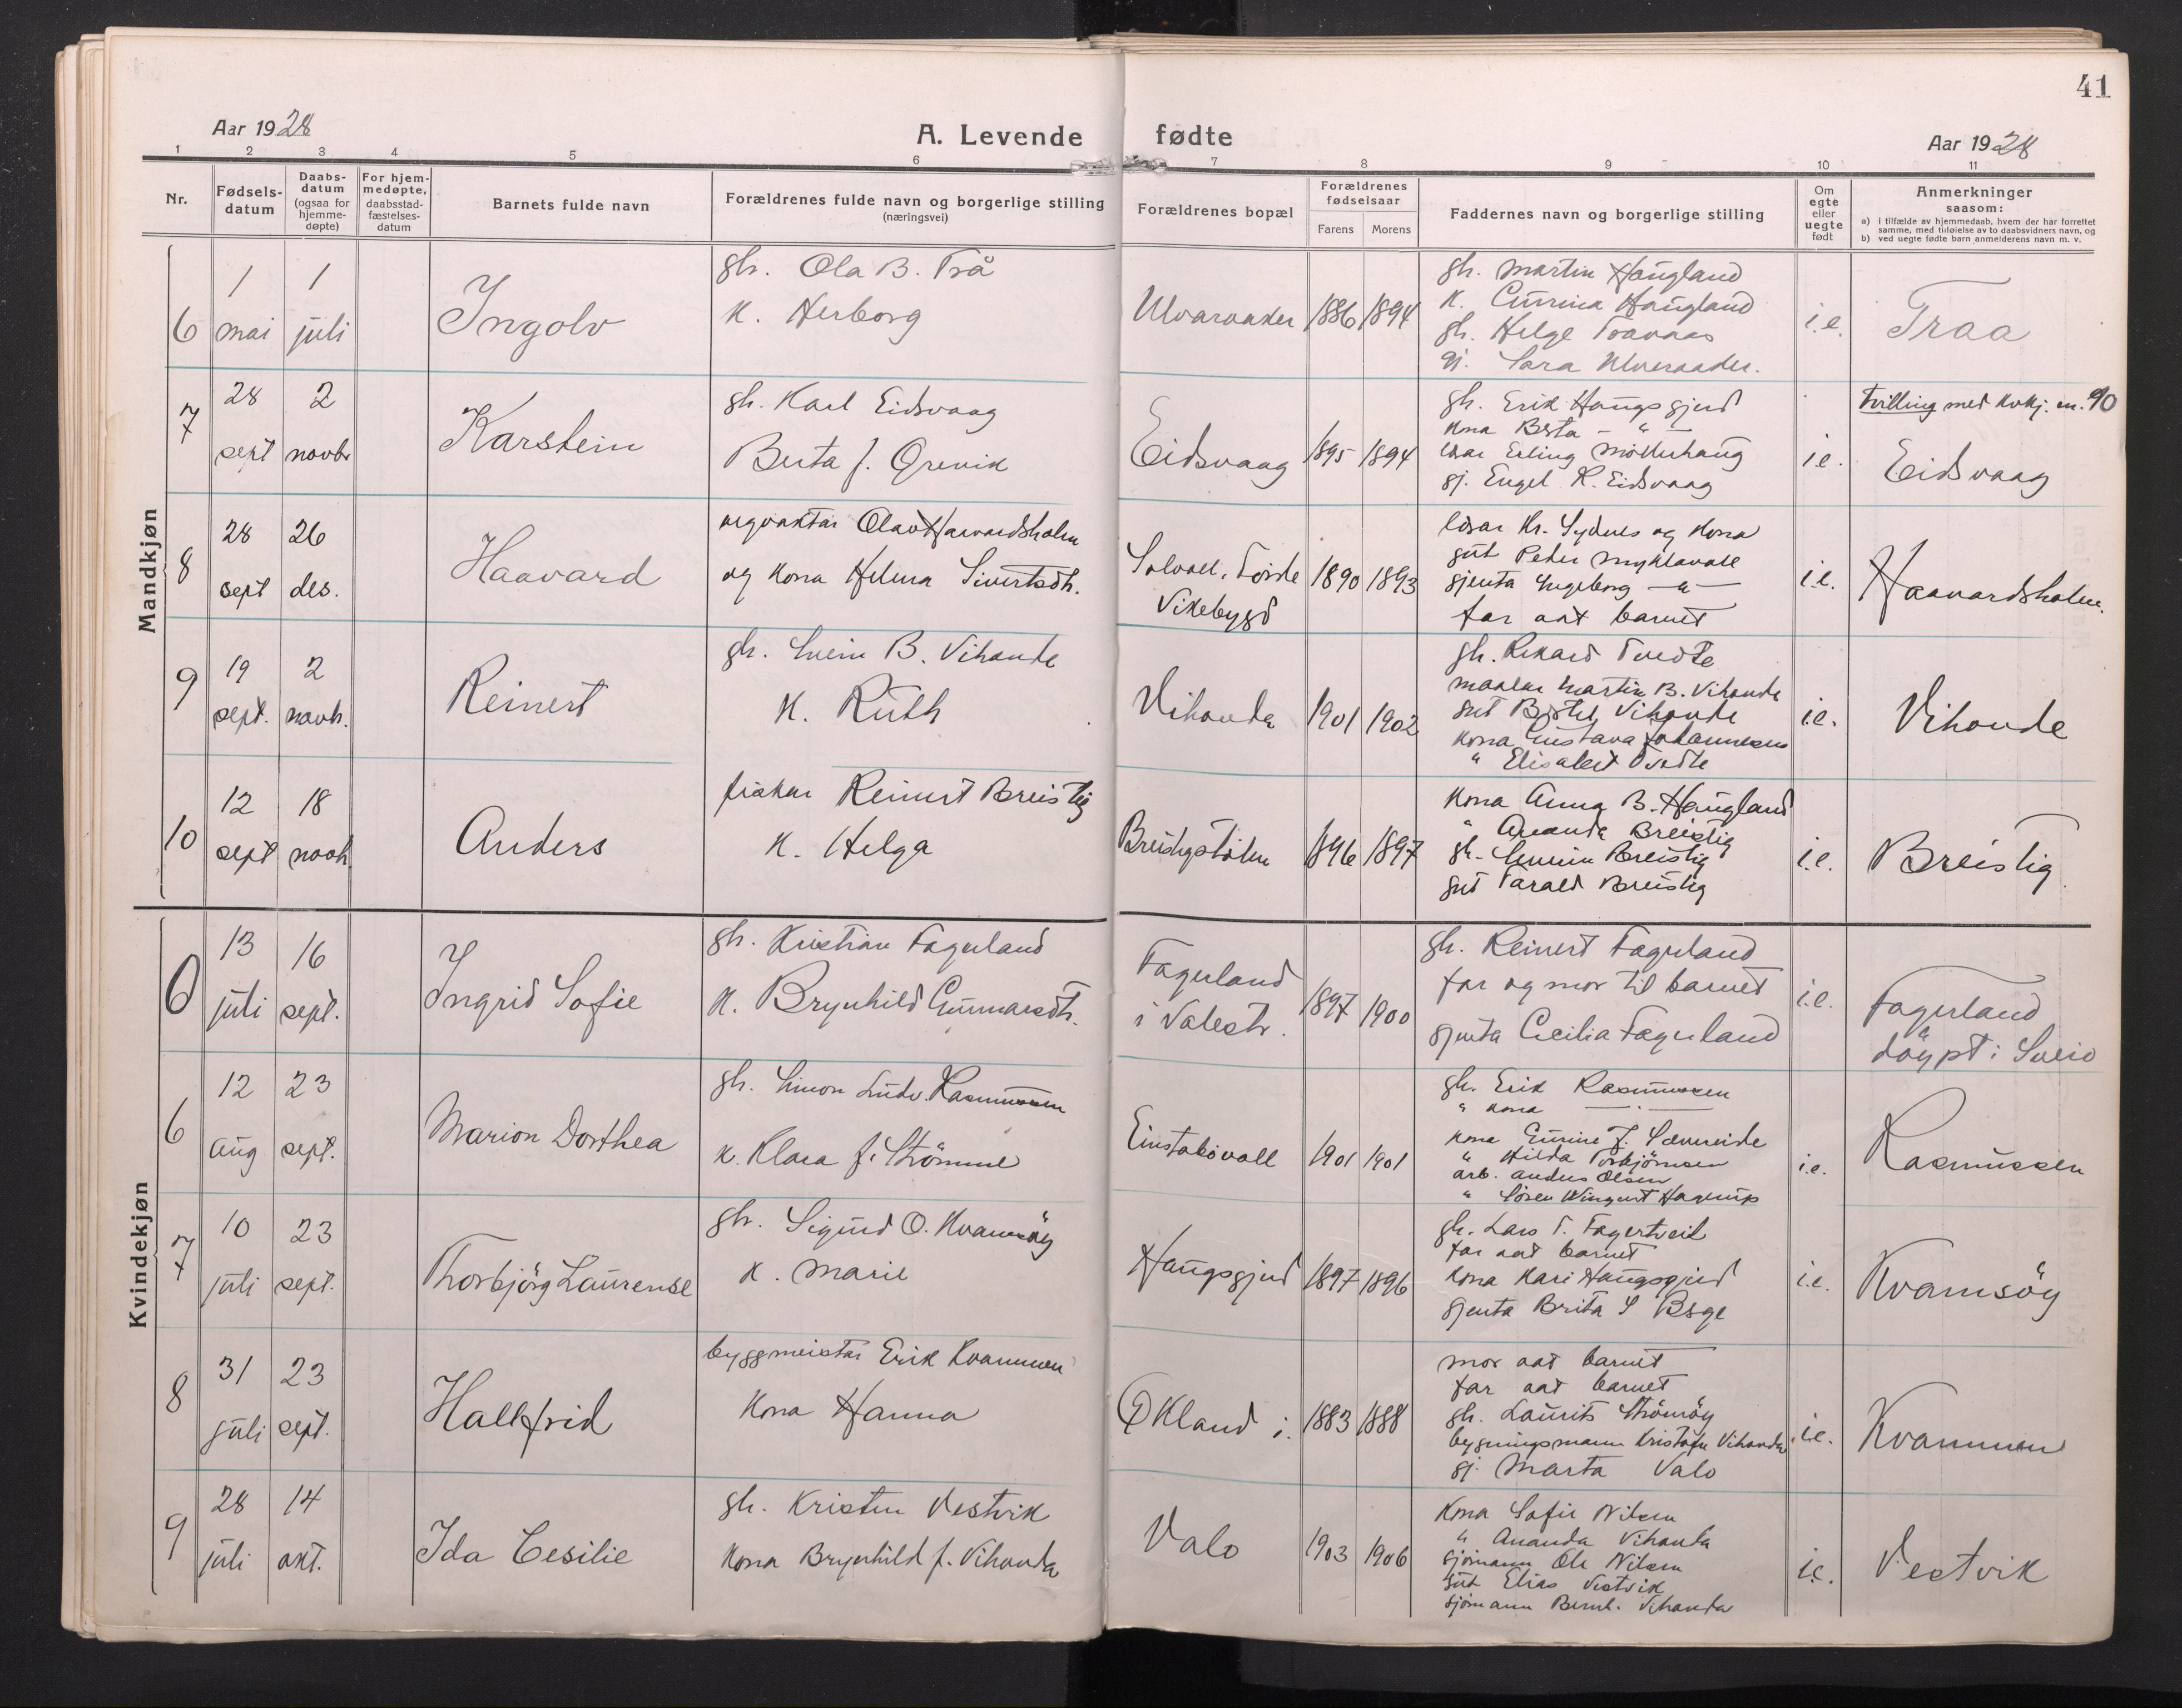 41
Aar 1928
A. Levende fødte
Aar 1928
1 2 3 4 5 6 7 8 9 10 11
Nr.
Fødsels-
datum
Daabs-
datum
(ogsaa for
hjemme-
døpte)
For hjem-
medøpte,
daabsstad-
fæstelses-
datum
Barnets fulde navn
Forældrenes fulde navn og borgerlige stilling
(næringsvei)
Forældrenes bopæl
Forældrenes
fødselsaar
Farens Morens
Faddernes navn og borgerlige stilling
Om
egte
eller
uegte
født
Anmerkninger
saasom:
a) i tilfælde av hjemmedaab, hvem der har forrettet
samme, med tilføielse av to daabsvidners navn, og
b) ved uegte fødte barn anmelderens navn m. v.
Mandkjøn
6
1
mai
1
juli
Ingolv
gbr. Ola B. Trå
K. Herborg
Ulvaraaker
1886 1894
gb. Martin Haugland
K. Haugland
gb. Helge
gj. Sara
i.e.
Traa
7
28
sept
2
novbr
Karstein
gb. Karl Eidsvaag
Berta f. Grevik
Eidsvaag
1895 1894
gb. Erik Haugsgjerd
Kona Berta - " -
Erling
gj. Engel K. Eidsvaag
i.e.
Tvilling med Kvkj. nr. 90
Eidsvaag
8
28
sept
26
des.
Haavard
Olav Haavardsholm
og Kona Helena Sivertsdtr.
Solvoll, Førde
Vikebygd
1890 1893
Kr. Sydnes og Kona
gut Peder Myklavoll
gjenta Ingeborg - " -
far aat barnet
i.e.
Haavardsholm.
9
19
sept.
2
novb.
Reinert
gb. Svein B. Vihovde
K. Ruth
Vihovda
1901 1902
gb. Rikard Tvedte
maalar Martin B. Vihovde
gut Vihovde
Kona Gustava Johannesens
" Elisabet Tvedte
i.e.
Vihovde
10
12
sept
18
novb
Anders
fiskar Reinert Breistig
K. Helga
Breistigstølen
1896 1897
Kona Anna B. Haugland
" Ananda Breistig
gb. Breistig
gut Tarald Breistig
i.e.
Breistig
Kvindekjøn
0
13
juli
16
sept.
Ingrid Sofie
gb. Kristian Fagerland
K. Brynhild Gunnarsdtr.
Fagerland
i Valestr.
1897 1900
gb. Reinert Fagerland
far og mor til barnet
gjenta Cecilia Fagerland
i.e.
Fagerland
döypt i Sveio
6
12
aug
23
sept.
Marion Dorthea
gb. Simon Ludv. Rasmussen
K. Klara f. Strömme
Einstabövoll
1901 1901
gb. Erik Rasmussen
" Kona - " -
Kona
" Hilda Torbjörnsen
arb. Anders Olsen
" Sören Wingert Hagerup
i.e.
Rasmussen
7
10
juli
23
sept.
Thorbjörg Laurense
gb. Sigurd O. Kvamsöy
K. Marie
Haugsgjerd
1897 1896
gb. Lars T. Fagertveit
far aat barnet
Kona Kari Haugsgjerd
gjenta Brita S
i.e.
Kvamsöy
8
31
juli
23
sept.
Hallfrid
byggmeistar Erik Kvammen
Kona Hanna
Økland i.
1883 1888
mor aat barnet
far aat barnet
gb. Laurits Strömöy
bygningsmann Kristofer Vihovda
gj. Marta Valo
i.e.
Kvammen
9
28
juli
14
okt.
Ida Cesilie
gb. Kristen Vestvik
Kona Brynhild f. Vihovda
Valo
1903 1906
Kona Sofie Nilsen
" Ananda Vihovda
sjömann Ole Nilsen
gut Elias Vestvik
sjömann Bernt. Vihovda
i.e.
Vestvik